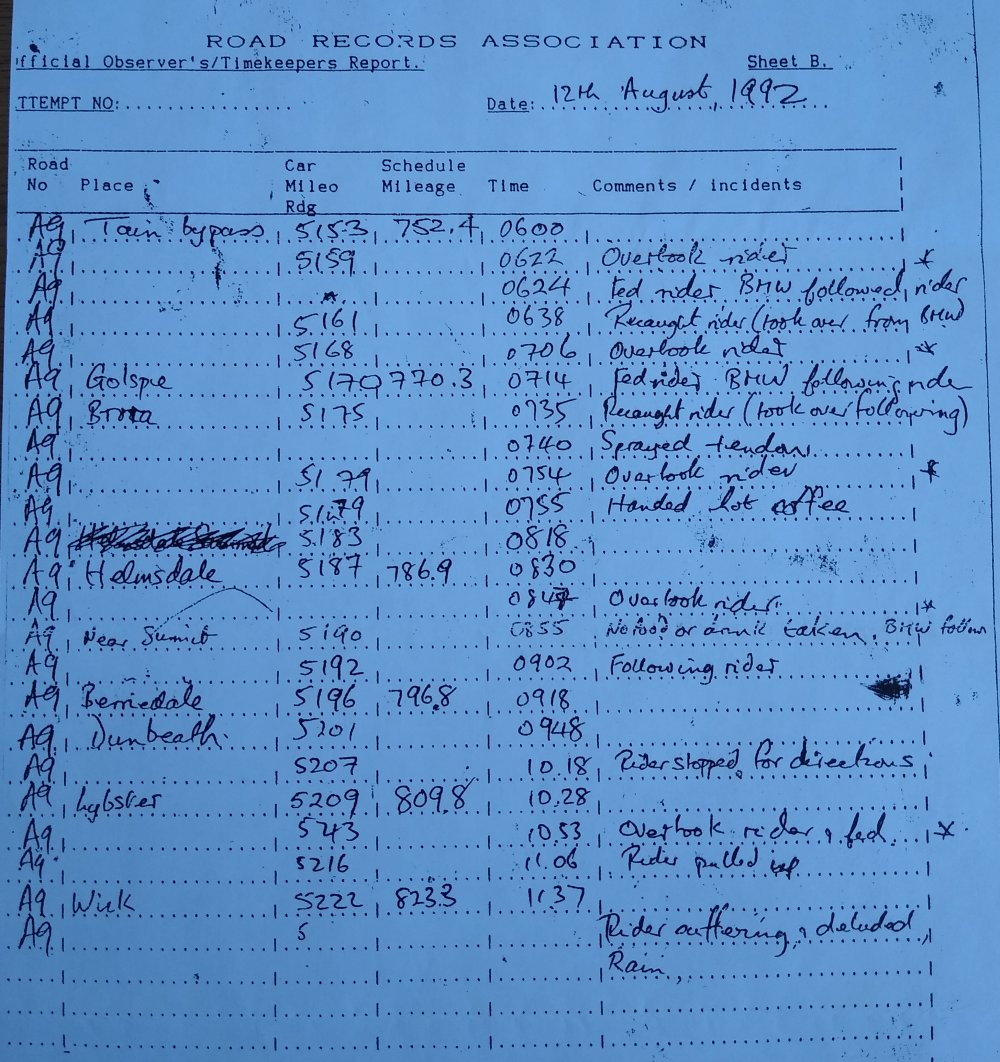 ROAD RECORDS ASSOCIATION
fficial Observer's/Timekeepers Report. Sheet B.
TTEMPT NO:................ Date: 12th August, 1992
Road Car Schedule
No Place Mileo Mileage Time Comments / incidents
Rdg
A9 Tain bypass 5153 752.4 0600
A9 5159 0622 Overtook rider *
A9 0624 Fed rider BMW followed rider
A9 5161 0638 Recaught rider (took over from BMW)
A9 5168 0706 Overtook rider *
A9 Golspie 5170 770.3 0714 Fed rider BMW following rider
A9 Brora 5175 0735 Recaught rider (took over following)
A9 0740 Sprayed tendon
A9 5179 0754 Overtook rider *
A9 5179 0755 Handed hot coffee
A9 5183 0818
A9 Helmsdale 5187 786.9 0830
A9 0847 Overtook rider *
A9 Near Summit 5190 0855 No food or drink taken, BMW follow
A9 5192 0902 Following rider
A9 Berriedale 5196 796.8 0918
A9 Dunbeath 5201 0948
A9 5207 10.18 Rider stopped for directions
A9 Lybster 5209 809.8 10.28
A9 10.53 Overtook rider & fed *
A9 5216 11.06 Rider pulled up
A9 Wick 5222 823.3 11.37
A9 5 Rider suffering & deluded,
Rain,